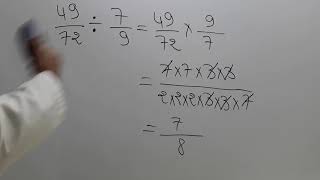 49/72 ÷ 7/9 = 49/72 × 9/7
= 7×7×3×3/2×2×2×3×3×7
= 7/8